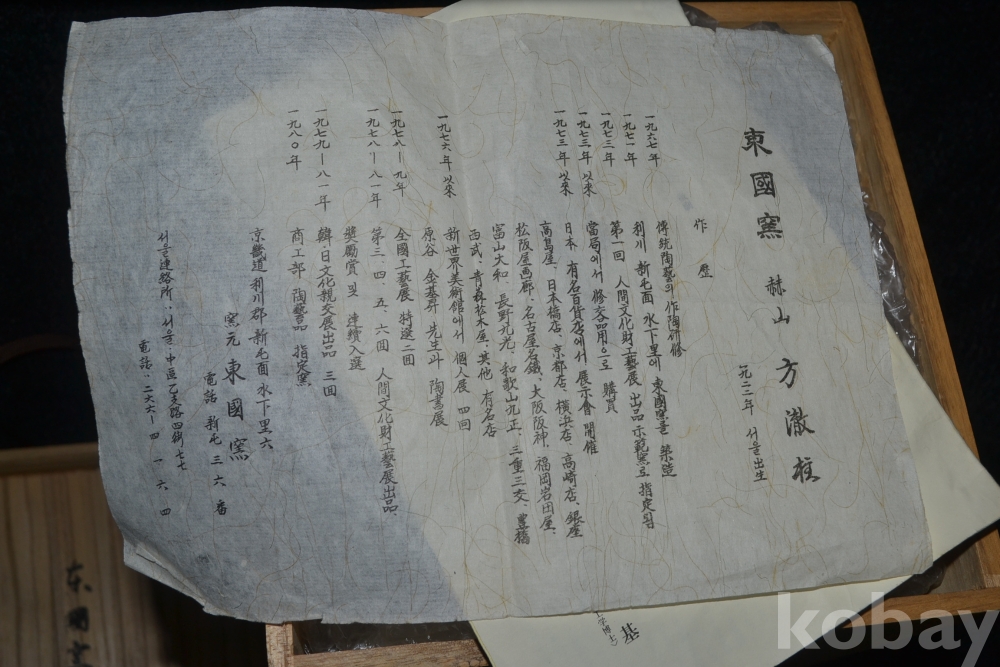 東國窯 赫山 方澈柱
一九二二年 서울出生
作歷
一九六七年 傳統陶藝의 作陶硏修
一九七一年 利川 新屯面 水下里에 東國窯를 築造
一九七二年 第一回 人間文化財工藝展 出品 示範窯로 指定됨
一九七三年 以來 當局에서 修交品用으로 購買
一九七三年 以來 日本 有名百貨店에서 展示會 開催
高島屋、日本橋店、京都店、橫浜店、高崎店、銀座
松阪屋画廊、名古屋名鐵、大阪阪神、福岡岩田屋、
富山大和、長野丸光、和歌山丸正、三重三交、豊橋
西武、青森松木屋、其他 有名店
一九七六年 以來 新世界美術館에서 個人展 四回
原谷 金基昇 先生과 陶書展
一九七八─九年 全國工藝展 特選二回
一九七八─八一年 第三、四、五、六回 人間文化財工藝展出品、
奬勵賞 및 連續入選
一九七九─八一年 韓、日文化親交展出品 三回
一九八〇年 商工部 陶藝品 指定窯
京畿道 利川郡 新屯面 水下里 六
窯元 東國窯
電話 新屯 三六番
서울連絡所、서울、中區乙支路四街七七
電話、二六六─四一六四
基
东國窯
kobay